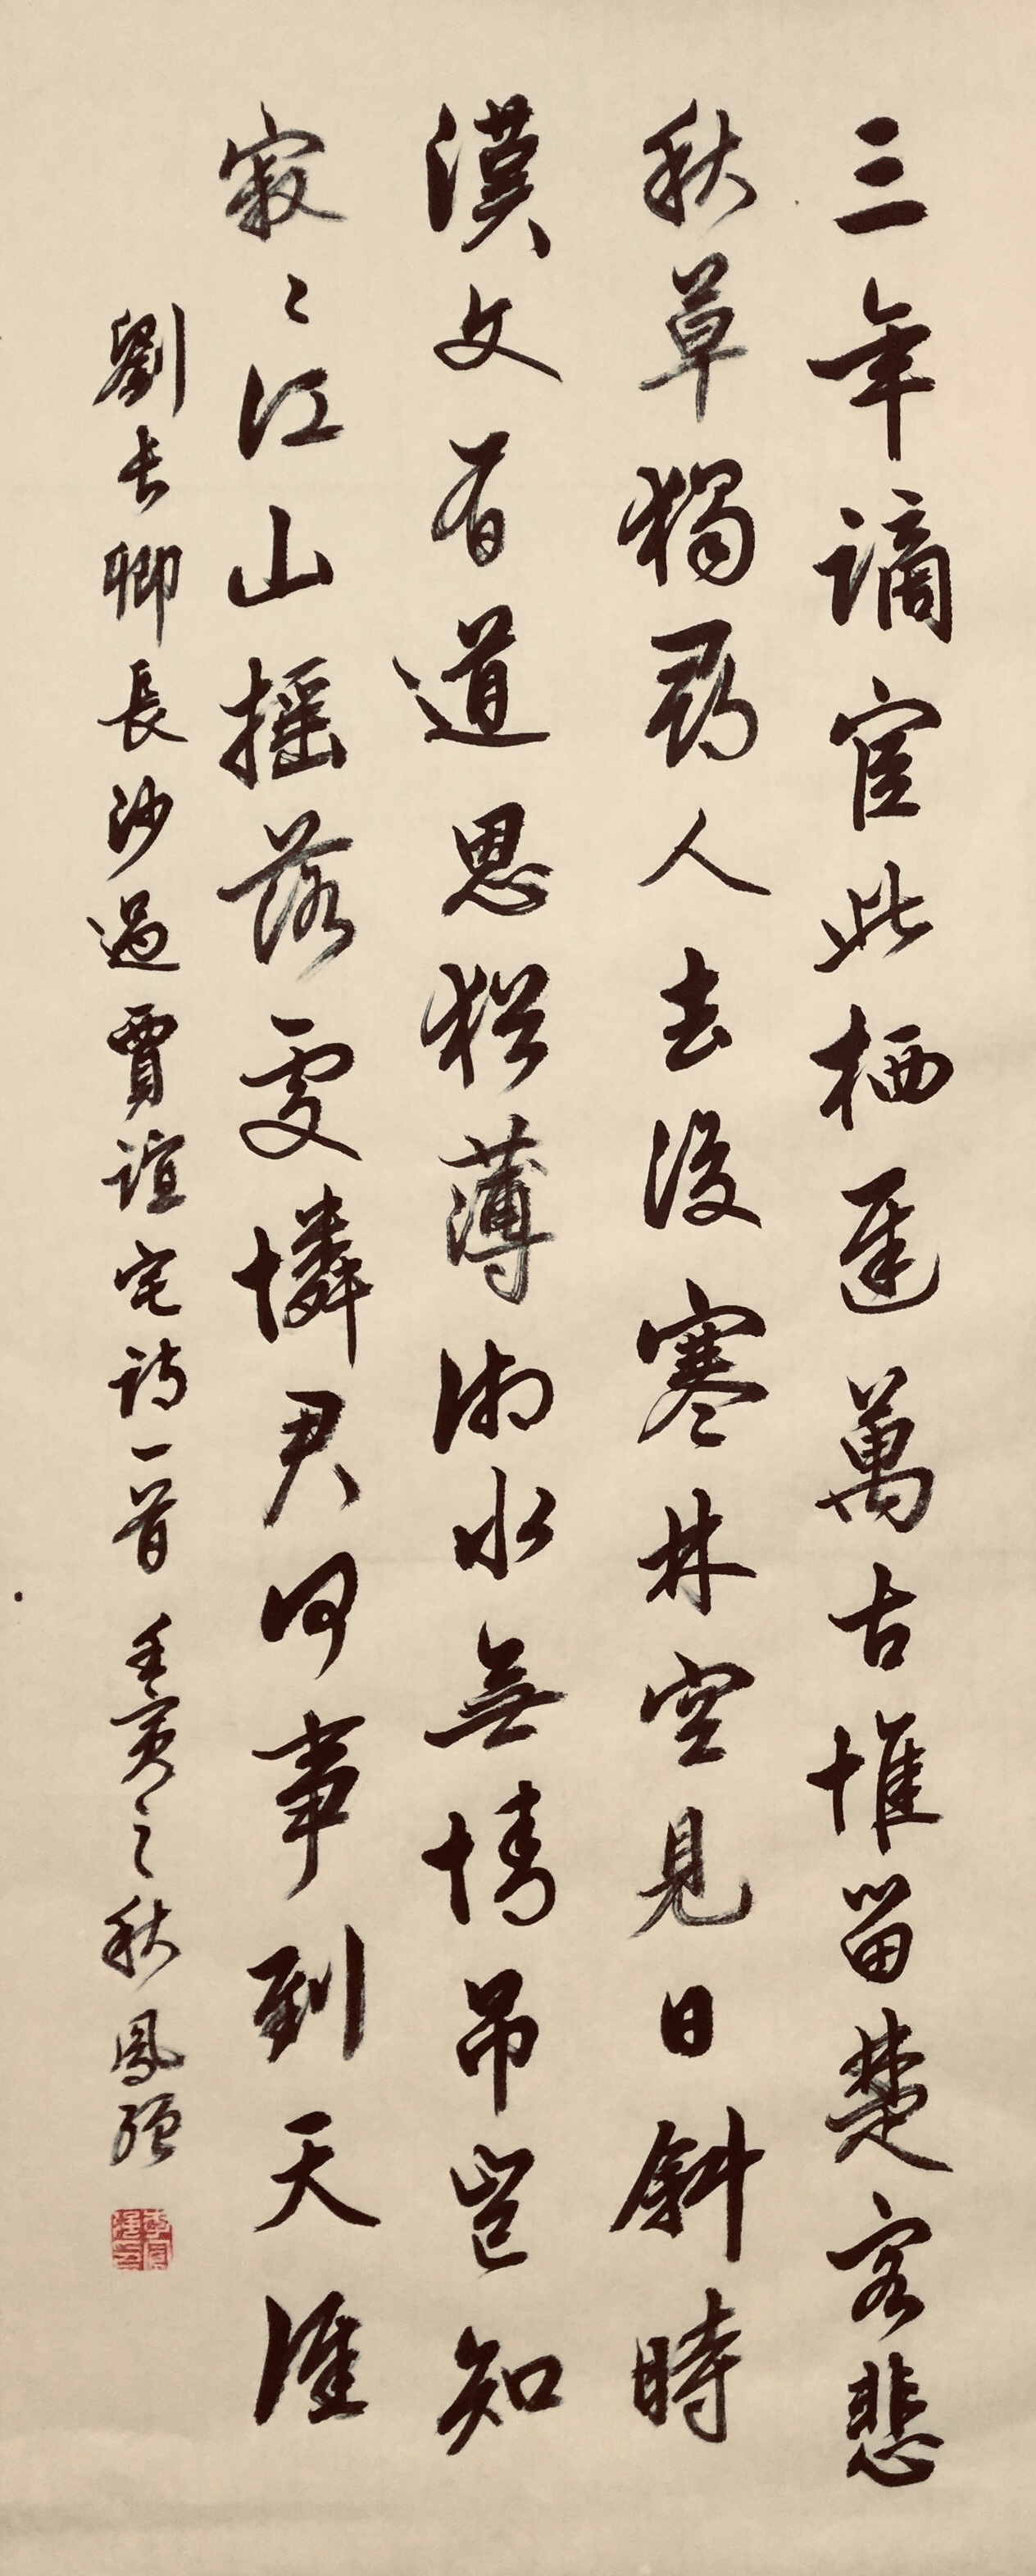 三年謫宦此栖遲萬古惟留楚客悲
秋草獨尋人去後寒林空見日斜時
漢文有道恩猶薄湘水無情吊豈知
寂〻江山摇落處憐君何事到天涯
劉長卿長沙過賈誼宅詩一首 壬寅之秋 鳳强